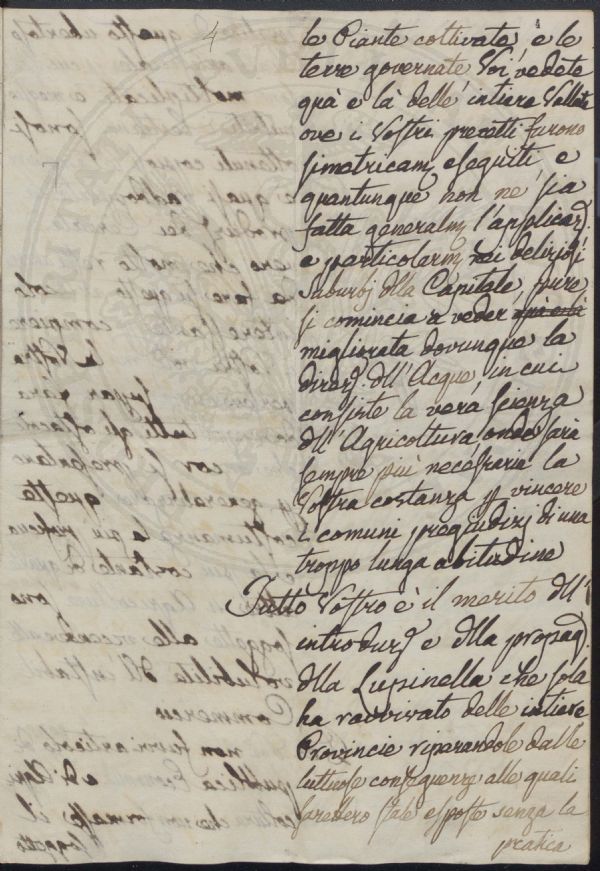 4
le Piante coltivate, e le
terre governate Voi vedete
quà e là delle intiere Vallate
ove i Vostri precetti furono
simetricam. eseguiti, e
quantunque non ne sia
fatta generalm. l'applicaz.
e particolarm. nei deliziosi
suburbj dlla Capitale, pure
si comincia a veder quà e là
migliorata dovunque la
direz. dll'Acque, in cui
consiste la vera scienza
dll'Agricoltura, onde sarà
sempre più necessaria la
Vostra costanza p vincere
i comuni pregiudizj di una
troppo lunga abitudine
Tutto Vostro è il merito dll'
introduz. e dlla propag.
dlla Lupinella che sola
ha ravvivato delle intiere
Provincie riparandole dalle
luttuose conseguenze alle quali
sarebbero state esposte senza la
pratica